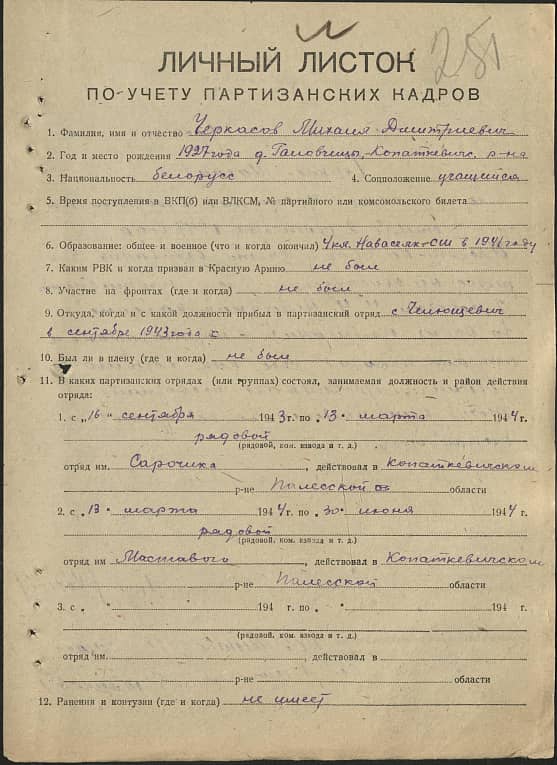 281
ЛИЧНЫЙ ЛИСТОК
ПО УЧЕТУ ПАРТИЗАНСКИХ КАДРОВ
1. Фамилия, имя и отчество Черкасов Михаил Дмитриевич
2. Год и место рождения 1927 года д. Гановчицы, Копаткевичс. р-на
3. Национальность белорусс 4. Соцположение учащийся
5. Время поступления в ВКП(б) или ВЛКСМ, № партийного или комсомольского билета
6. Образование: общее и военное (что и когда окончил) 4 кл. СШ в 1946 году
7. Каким РВК и когда призван в Красную Армию не был
8. Участие на фронтах (где и когда) не был
9. Откуда, когда и с какой должности прибыл в партизанский отряд с Челющевич
в сентябре 1943 года
10. Был ли в плену (где и когда) не был
11. В каких партизанских отрядах (или группах) состоял, занимаемая должность и район действия
отряда:
1. с „16" сентября 1943 г. по „13" марта 1944 г.
рядовой
(рядовой, ком. взвода и т. д.)
отряд им. Сарочика, действовал в Копаткевичском
р-не Палесской об области
2. с „13" марта 1944 г. по „30" июня 1944 г.
рядовой
(рядовой, ком. взвода и т. д.)
отряд им. Маставого, действовал в Копаткевичском
р-не Палесской области
3. с „ " 194 г. по „ " 194 г.
(рядовой, ком. взвода и т. д.)
отряд им. , действовал в
р-не области
12. Ранения и контузии (где и когда) не имеет